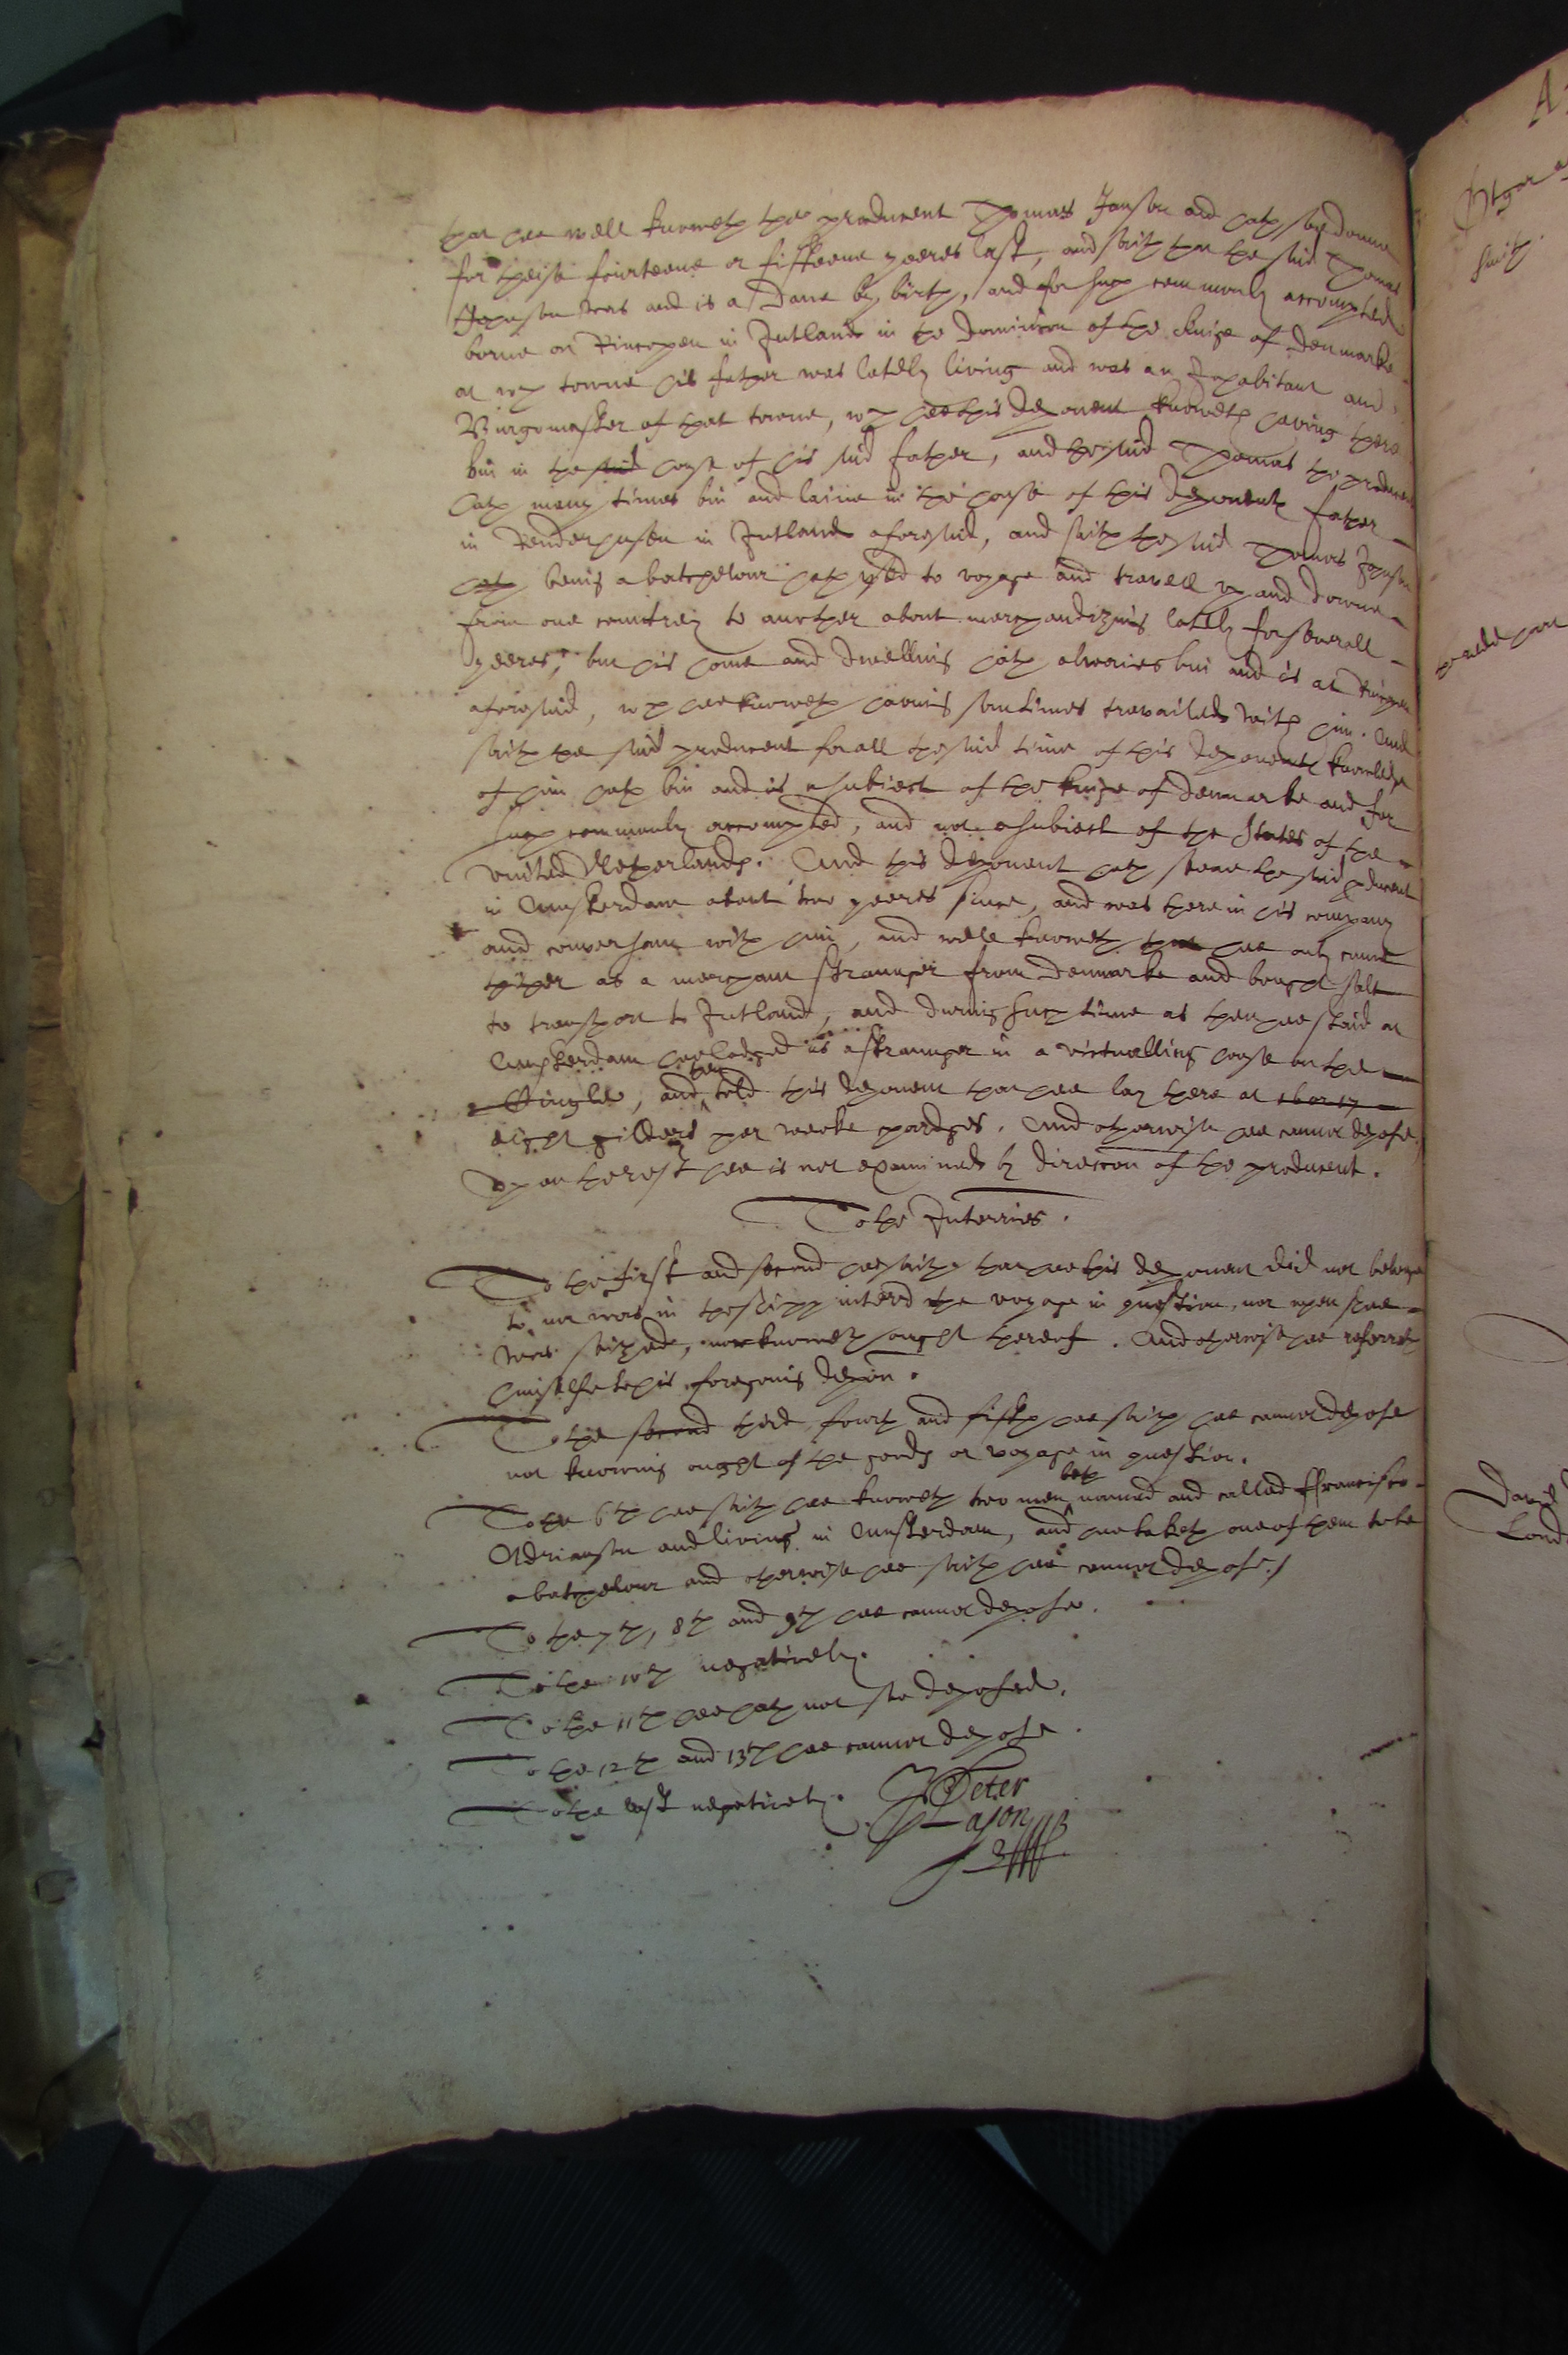 that hee well knoweth the producent Thomas Janson and hath soe donne
for theise fourteene or fifteene yeeres last, and saith that the said Thomas
Johnson was and is a Dane by birth, and for such commonly accompted
borne at Rincopen in Jutland in the dominion of the kinge of Denmarke
at wch towne his father was lately living and was an Inhabitant and
Burgomaster of that towne, wch hee this deponent knoweth having there
bin in the said house of his said father, and the said Thomas the producent
hath many times bin and laine in the house of this deponents father
in Renderhusen in Jutland aforesaid, and saith the said Thomas Johnson
hath being a batchelour hath used to voyage and travell up and downe
from one countrey to another about merchandizing lately for severall
yeeres, but his home and dwelling hath alwaies bin and is at Ringen
aforesaid, wch hee knoweth having somtimes travailed with him. And
saith the said producent for all the said time of this deponents knowledge
of him hath bin and is a subiect of the kinge of Denmarke and for
such commonly accompted, and not a subiect of the States of the
United Netherlands. And this deponent hath seene the said producent
in Amsterdam about two yeeres since, and was there in his company
and conversant with him, and well knoweth that hee only came
thither as a merchant stranger from Denmarke and bought salt
to transport to Jutland, and during such time as then hee staid at
Amsterdam hee lodged as a stranger in a victualling house on the
Cingle, and then told this deponent that hee lay there at
eight gilders per weeke chardges. And otherwise hee cannot depose,
Upon the rest hee is not examined by direccon of the producent.
To the Interries.
To the first and second hee saith that hee this deponent did not belonge
to nor was in the shipp interred the voyage in question, nor when shee
was seized, nor knoweth ought thereof. And otherwise hee referreth
himselfe to his foregoing depon.
To the second third fourth and fifth hee saith hee cannot depose
not knowing ought of the goods or voyage in question.
To the 6th hee saith hee knoweth two men both named and called ffrancisco
Adrianson and living in Amsterdam, and hee taketh one of them to be
a batchelour and otherwise hee saith hee cannot depose./
To the 7th, 8th and 9th hee cannot depose.
To the 10th negatively.
To the 11th hee hath not soe deposed.
To the 12th and 13th hee cannot depose
To the last negatively.
Peter
Lason